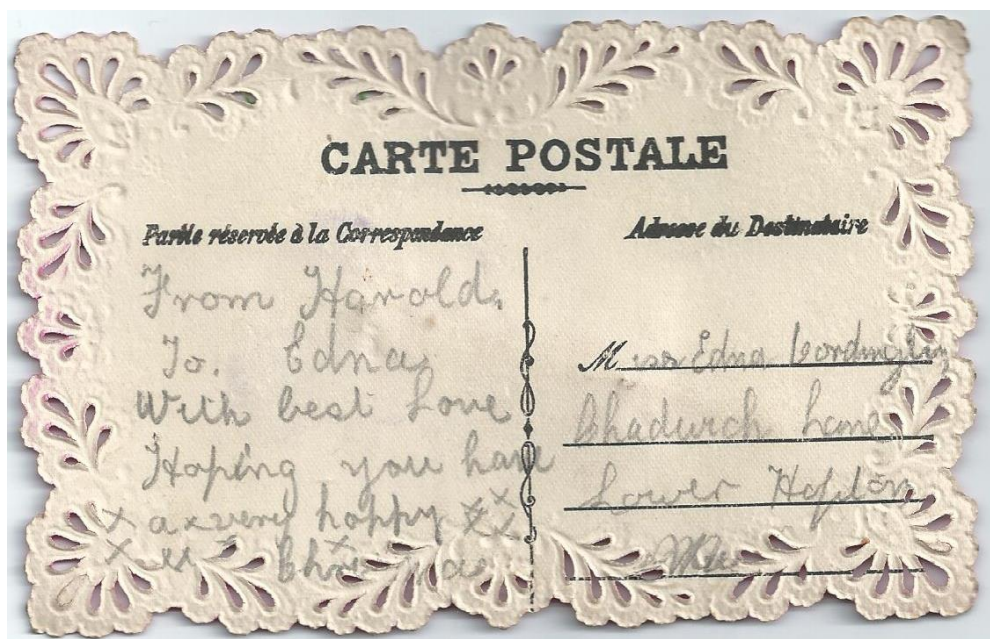 CARTE POSTALE
Partie réservée à la Correspondance
From Harold.
To. Edna
With best Love
Hoping you have
x a x very happy x x x x
x x x Christmas
Adresse du Destinataire
Miss Edna Cordingley
Chadwick Lane
Lower Hopton